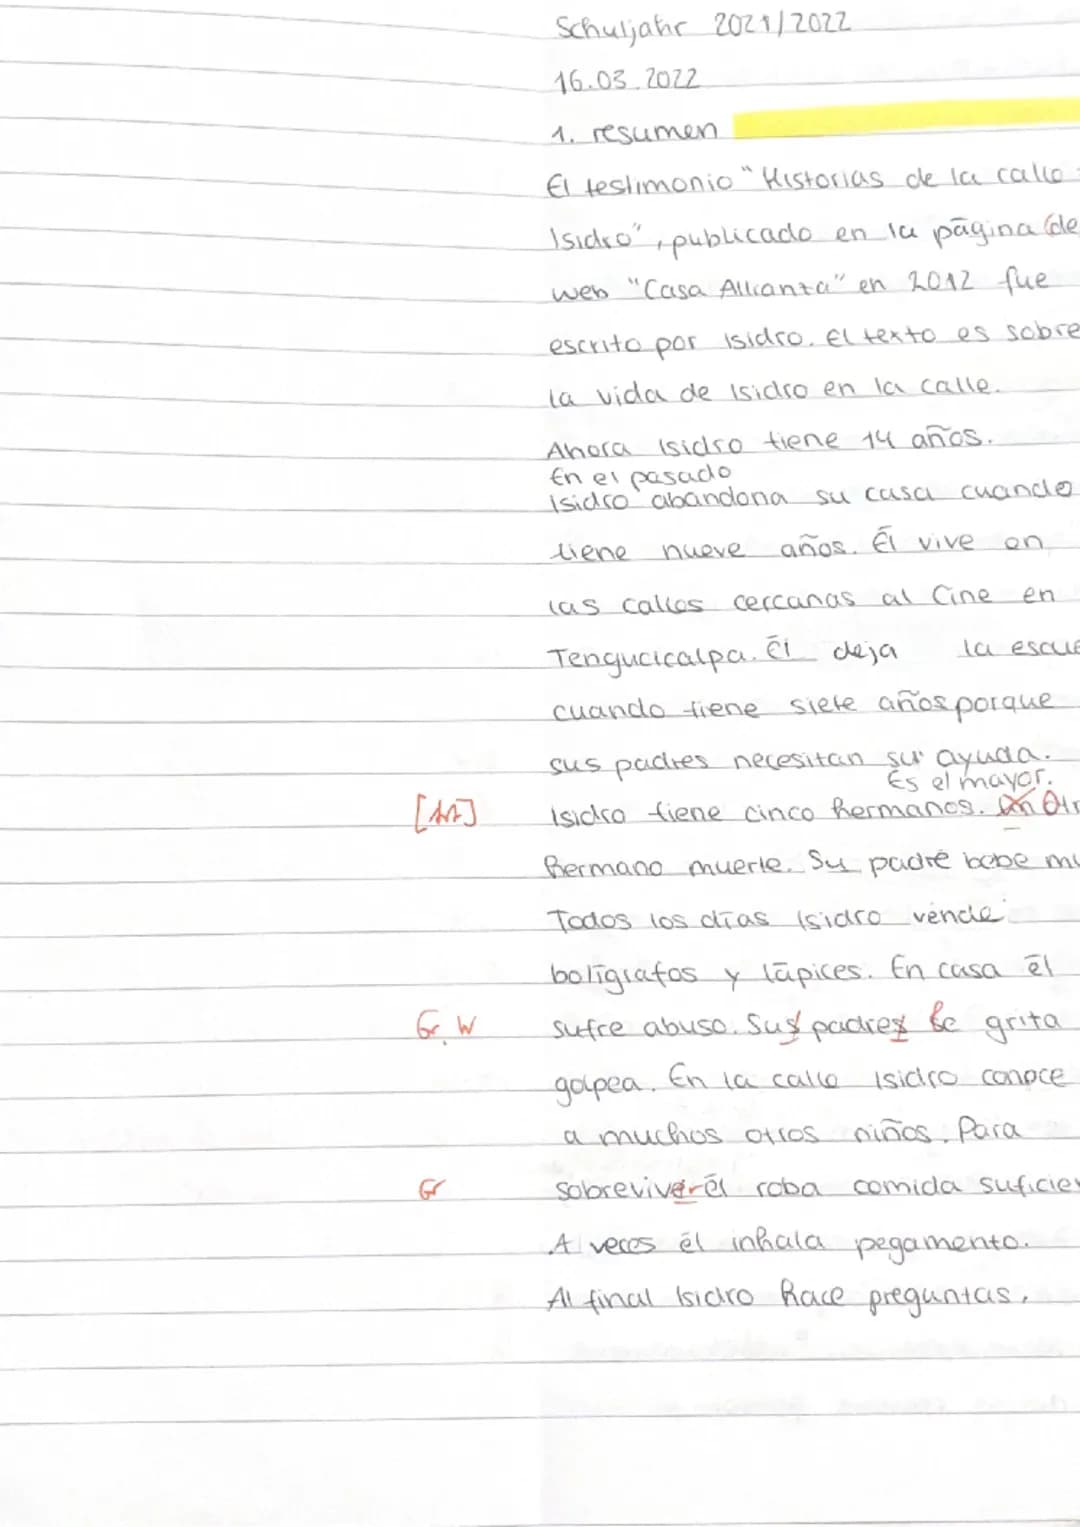 Schuljahr 2021/2022
16.03.2022
1. resumen
El testimonio "Historias de la calle :
Isidro", publicado en la página (de
web "Casa Allianza" en 2012 fue
escrito por Isidro. El texto es sobre
la vida de Isidro en la calle.
Ahora Isidro tiene 14 años.
En el pasado
Isidro abandona su casa cuando
tiene nueve años. Él vive en
las calles cercanas al Cine en
Tengucicalpa. Él deja la escue
cuando tiene siete años porque
sus padres necesitan su ayuda.
Es el mayor.
Isidro tiene cinco hermanos. Otr
hermano muerte. Su padre bebe mu
Todos los días Isidro vende
bolígrafos y lápices. En casa él
Gr, W sufre abuso. Sus padres le grita
golpea. En la calle Isidro conoce
a muchos otros niños. Para
Gr sobreviver él roba comida suficien
A veces él inhala pegamento.
Al final Isidro hace preguntas.